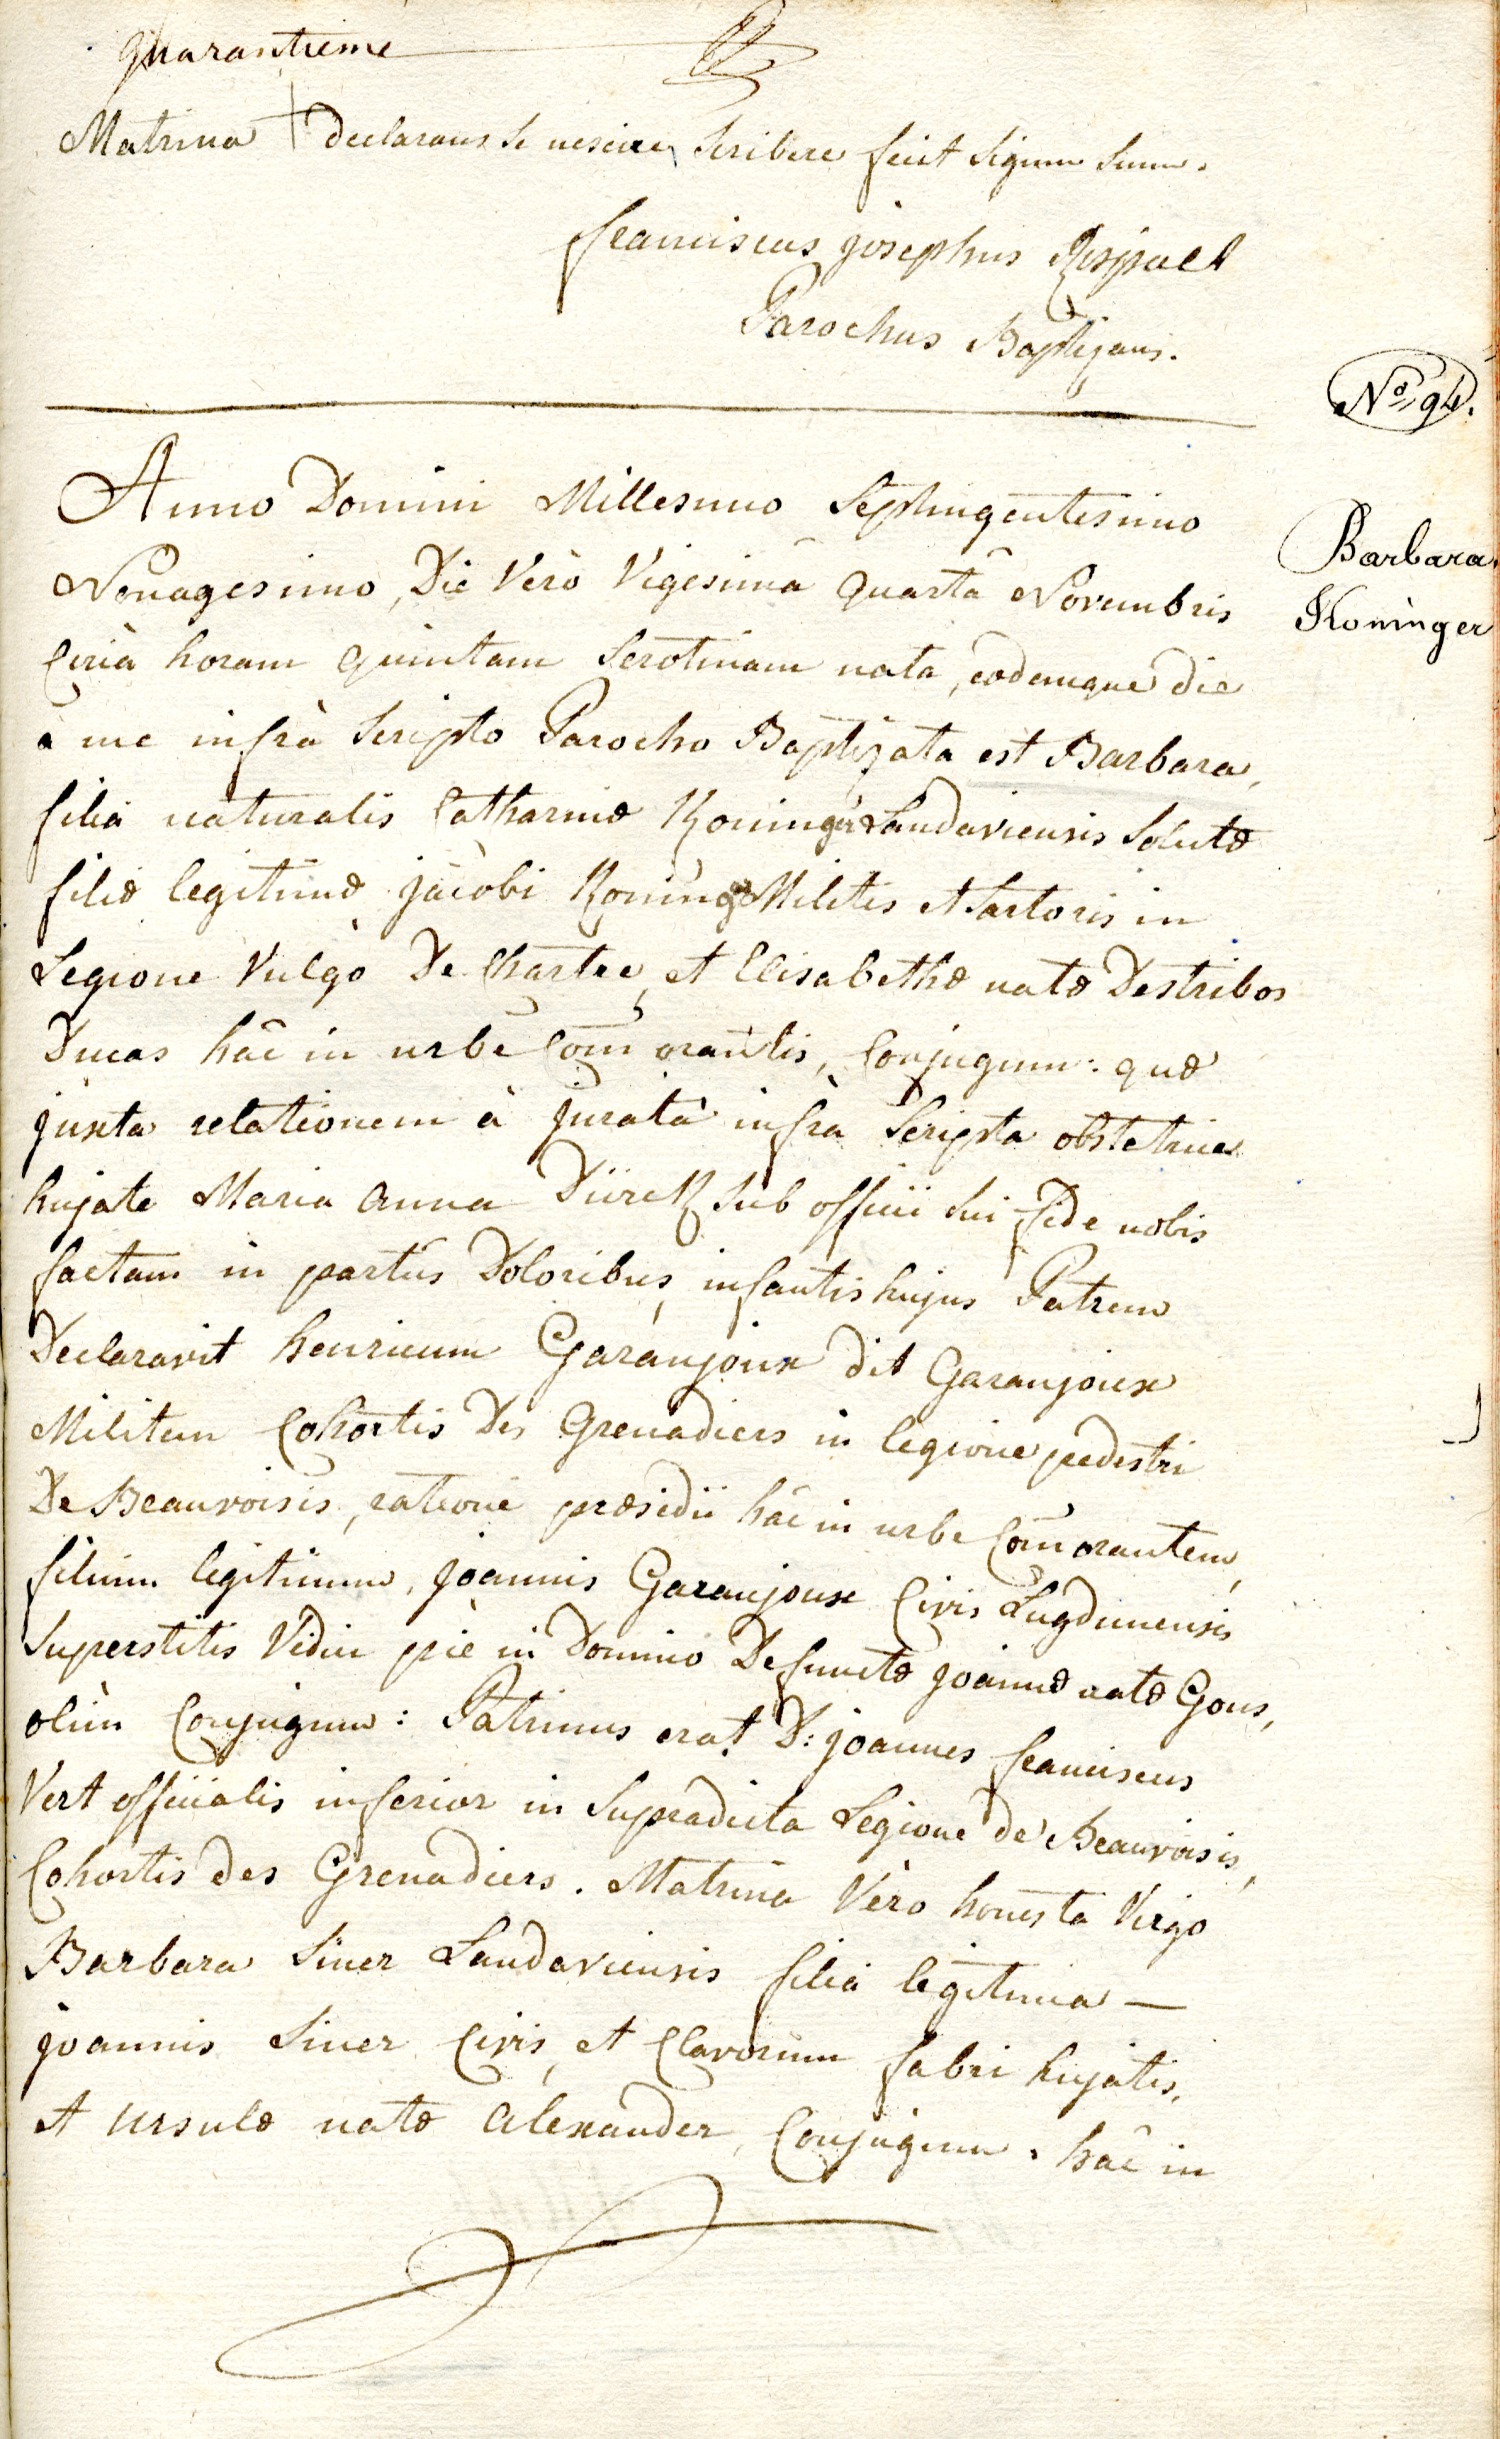 quarantieme
Matrina + declarans se nescire, scribere fecit signum suum.
franciscus josephus Rispalt
Parochus Baptizans.
Nº 94.
Barbara
Koninger
Anno Domini Millesimo Septingentesimo
Nonagesimo, Die Verò Vigesimâ quartâ Novembris
Circà horam quintam Serotinam nata, eodemque die
à me infrà Scripto Parocho Baptizata est Barbara,
filia naturalis Catharinæ Koninger Landaviensis Solutæ
filiæ legitimæ jacobi Koninger Militis et Sartoris in
Legione Vulgò De Chartre, et Elisabethæ natæ Destribos
Ducas hâc in urbe Com̄orantis, Conjugum: quæ
juxta relationem à juratâ infrà Scripta obstetrice
hujate Maria Anna Dürck sub officii sui fide nobis
factam in partûs Doloribus, infantis hujus Patrem
Declaravit henricum Garanjoux dit Garanjoux
Militem Cohortis Des Grenadiers in legione pedestri
De Beauvoisis, ratione præsidii hâc in urbe Com̄orantem,
filium legitimum, joannis Garanjoux Civis Lugdunensis
Superstitis Vidui piè in Domino Defunctæ joannæ natæ Gous,
olim Conjugum: Patrinus erat D: joannes franciscus
Vert officialis inferior in Supradicta Legione de Beauvoisis,
Cohortis des Grenadiers. Matrina Vero honesta Virgo
Barbara Siner Landaviensis filia legitima —
joannis Siner Civis, et Clavorum fabri hujatis,
et Ursulæ natæ Alexander, Conjugum. hâc in